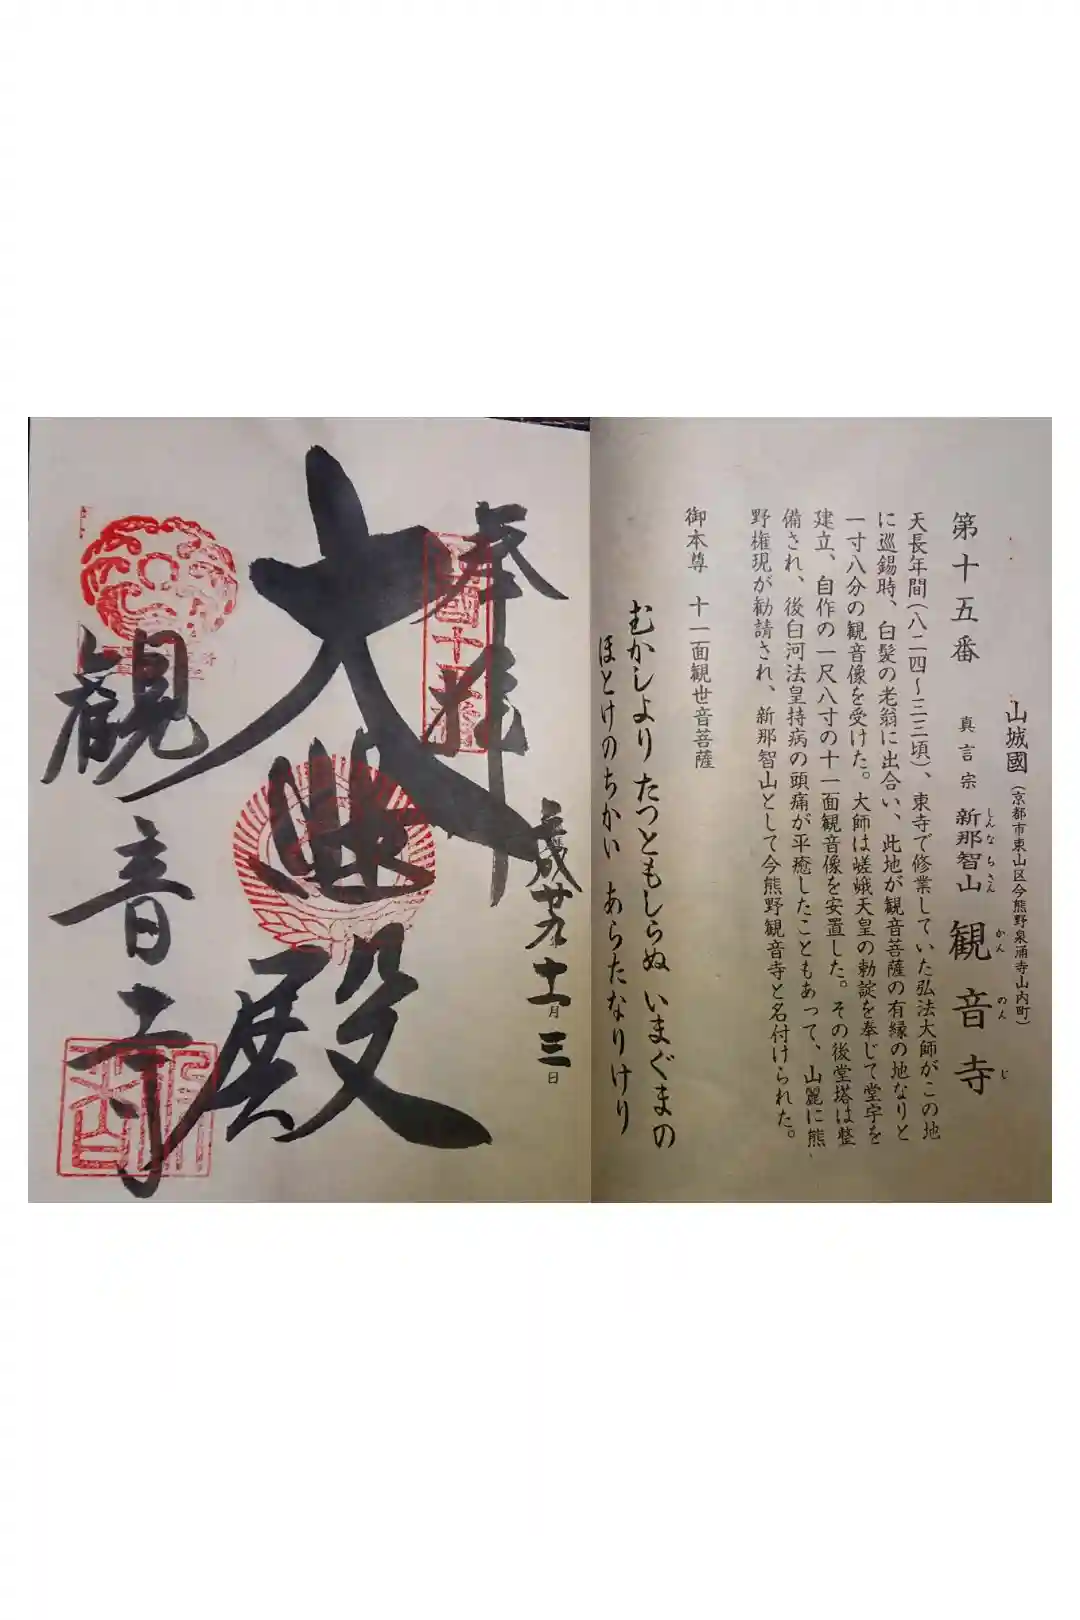 山城國(京都市東山区今熊野泉涌寺山内町)
第十五番 真言宗 新那智山 観音寺
しんなちさん かんのんじ
天長年間(八二四〜三三頃)、東寺で修業していた弘法大師がこの地
に巡錫時、白髪の老翁に出合い、此地が観音菩薩の有縁の地なりと
一寸八分の観音像を受けた。大師は嵯峨天皇の勅諚を奉じて堂宇を
建立、自作の一尺八寸の十一面観音像を安置した。その後堂塔は整
備され、後白河法皇持病の頭痛が平癒したこともあって、山麓に熊
野権現が勧請され、新那智山として今熊野観音寺と名付けられた。
御本尊 十一面観世音菩薩
むかしより たつともしらぬ いまぐまの
ほとけのちかい あらたなりけり
奉拝
平成廿九年十一月三日
大悲殿
観音寺